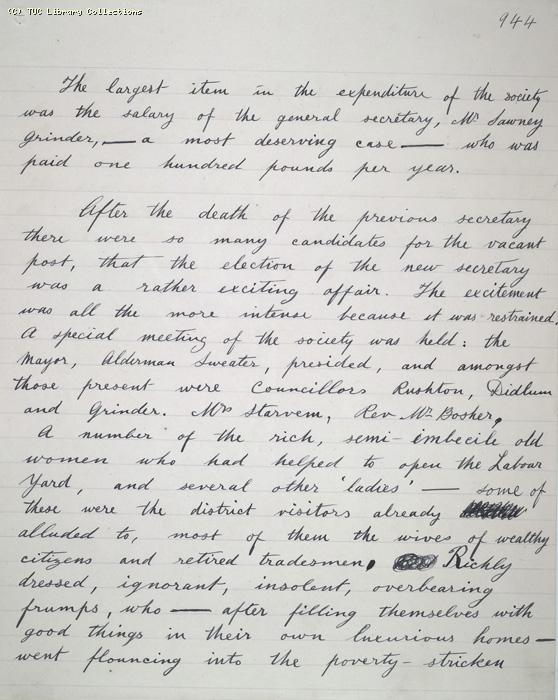 (C) TUC Library Collections
944
The largest item in the expenditure of the society
was the salary of the general secretary, Mr Sawney
Grinder, — a most deserving case — who was
paid one hundred pounds per year.
After the death of the previous secretary
there were so many candidates for the vacant
post, that the election of the new secretary
was a rather exciting affair. The excitement
was all the more intense because it was restrained.
A special meeting of the society was held: the
Mayor, Alderman Sweater, presided, and amongst
those present were Councillors Rushton, Didlum
and Grinder. Mrs Starvem, Rev. Mr Bosher,
A number of the rich, semi-imbecile old
women who had helped to open the Labour
Yard, and several other 'ladies' — some of
these were the district visitors already
alluded to, most of them the wives of wealthy
citizens and retired tradesmen, Richly
dressed, ignorant, insolent, overbearing
frumps, who — after filling themselves with
good things in their own luxurious homes —
went flouncing into the poverty-stricken